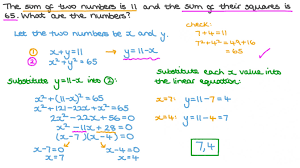 The sum of two numbers is 11 and the sum of their squares is
65. What are the numbers?
Let the two numbers be x and y.
① x+y=11 → y=11-x
② x²+y²=65
check:
7+4=11
7²+4²=49+16
=65 ✓
substitute y=11-x into ②:
x²+(11-x)²=65
x²+121-22x+x²=65
2x²-22x+56=0
x²-11x+28=0
(x-7)(x-4)=0
x-7=0 x-4=0
x=7 x=4
substitute each x value into
the linear equation:
x=7: y=11-7=4
x=4: y=11-4=7
7,4